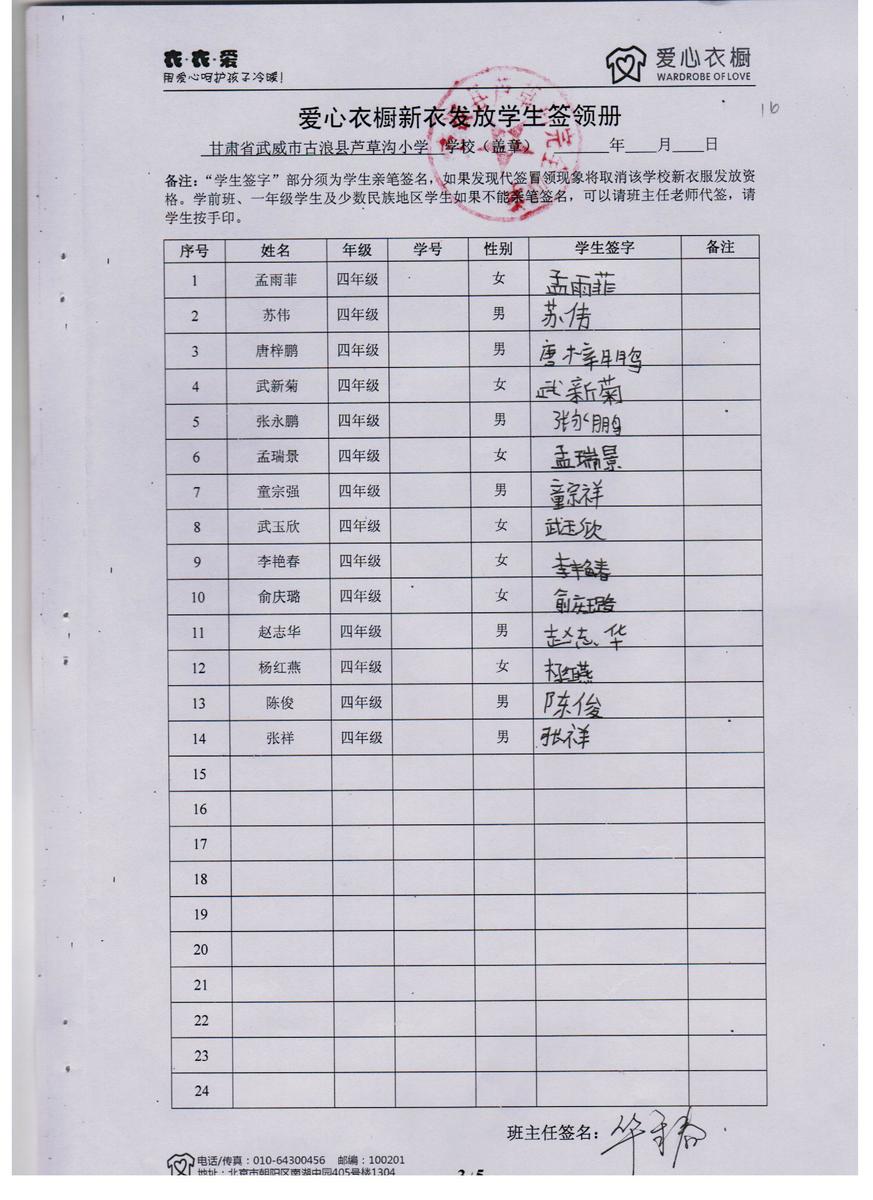 衣·衣·爱
用爱心呵护孩子冷暖！
爱心衣橱
WARDROBE OF LOVE
16
爱心衣橱新衣发放学生签领册
甘肃省武威市古浪县芦草沟小学 学校（盖章） 年 月 日
备注：“学生签字”部分须为学生亲笔签名，如果发现代签冒领现象将取消该学校新衣服发放资
格。学前班、一年级学生及少数民族地区学生如果不能亲笔签名，可以请班主任老师代签，请
学生按手印。
序号 姓名 年级 学号 性别 学生签字 备注
1 孟雨菲 四年级 女 孟雨菲
2 苏伟 四年级 男 苏伟
3 唐梓鹏 四年级 男 唐梓鹏
4 武新菊 四年级 女 武新菊
5 张永鹏 四年级 男 张永鹏
6 孟瑞景 四年级 女 孟瑞景
7 童宗强 四年级 男 童宗祥
8 武玉欣 四年级 女 武玉欣
9 李艳春 四年级 女 李艳春
10 俞庆璐 四年级 女 俞庆璐
11 赵志华 四年级 男 赵志华
12 杨红燕 四年级 女 杨红燕
13 陈俊 四年级 男 陈俊
14 张祥 四年级 男 张祥
15
16
17
18
19
20
21
22
23
24
班主任签名：
电话/传真：010-64300456 邮编：100201
地址：北京市朝阳区南湖中园405号楼1304
3 / 5